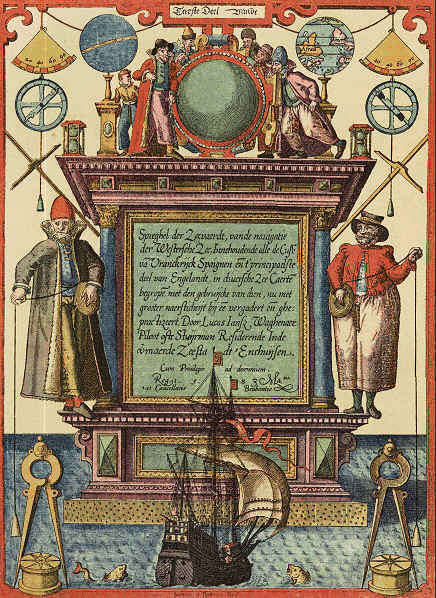 Teerste Deel vande
Spieghel der Zeevaerdt, vande navigatie
der Westersche Zee, Innehoudende alle de Custẽ
vã Vranckrijck Spaignen eñ t'principaelste
deel van Engelandt, in diversche Zee Caertẽ
begrepẽ, met den gebruijcke van dien, nu met
grooter naersticheijt bij eẽ vergadert eñ ghe-
practizeert, Door Lucas Iansz Waghenaer
Piloot ofte Stuijrman Residerende Inde
vermaerde Zeestadt Enchuijsen.
Cum Privilegio ad decennium.
Cancellarie Brabantie